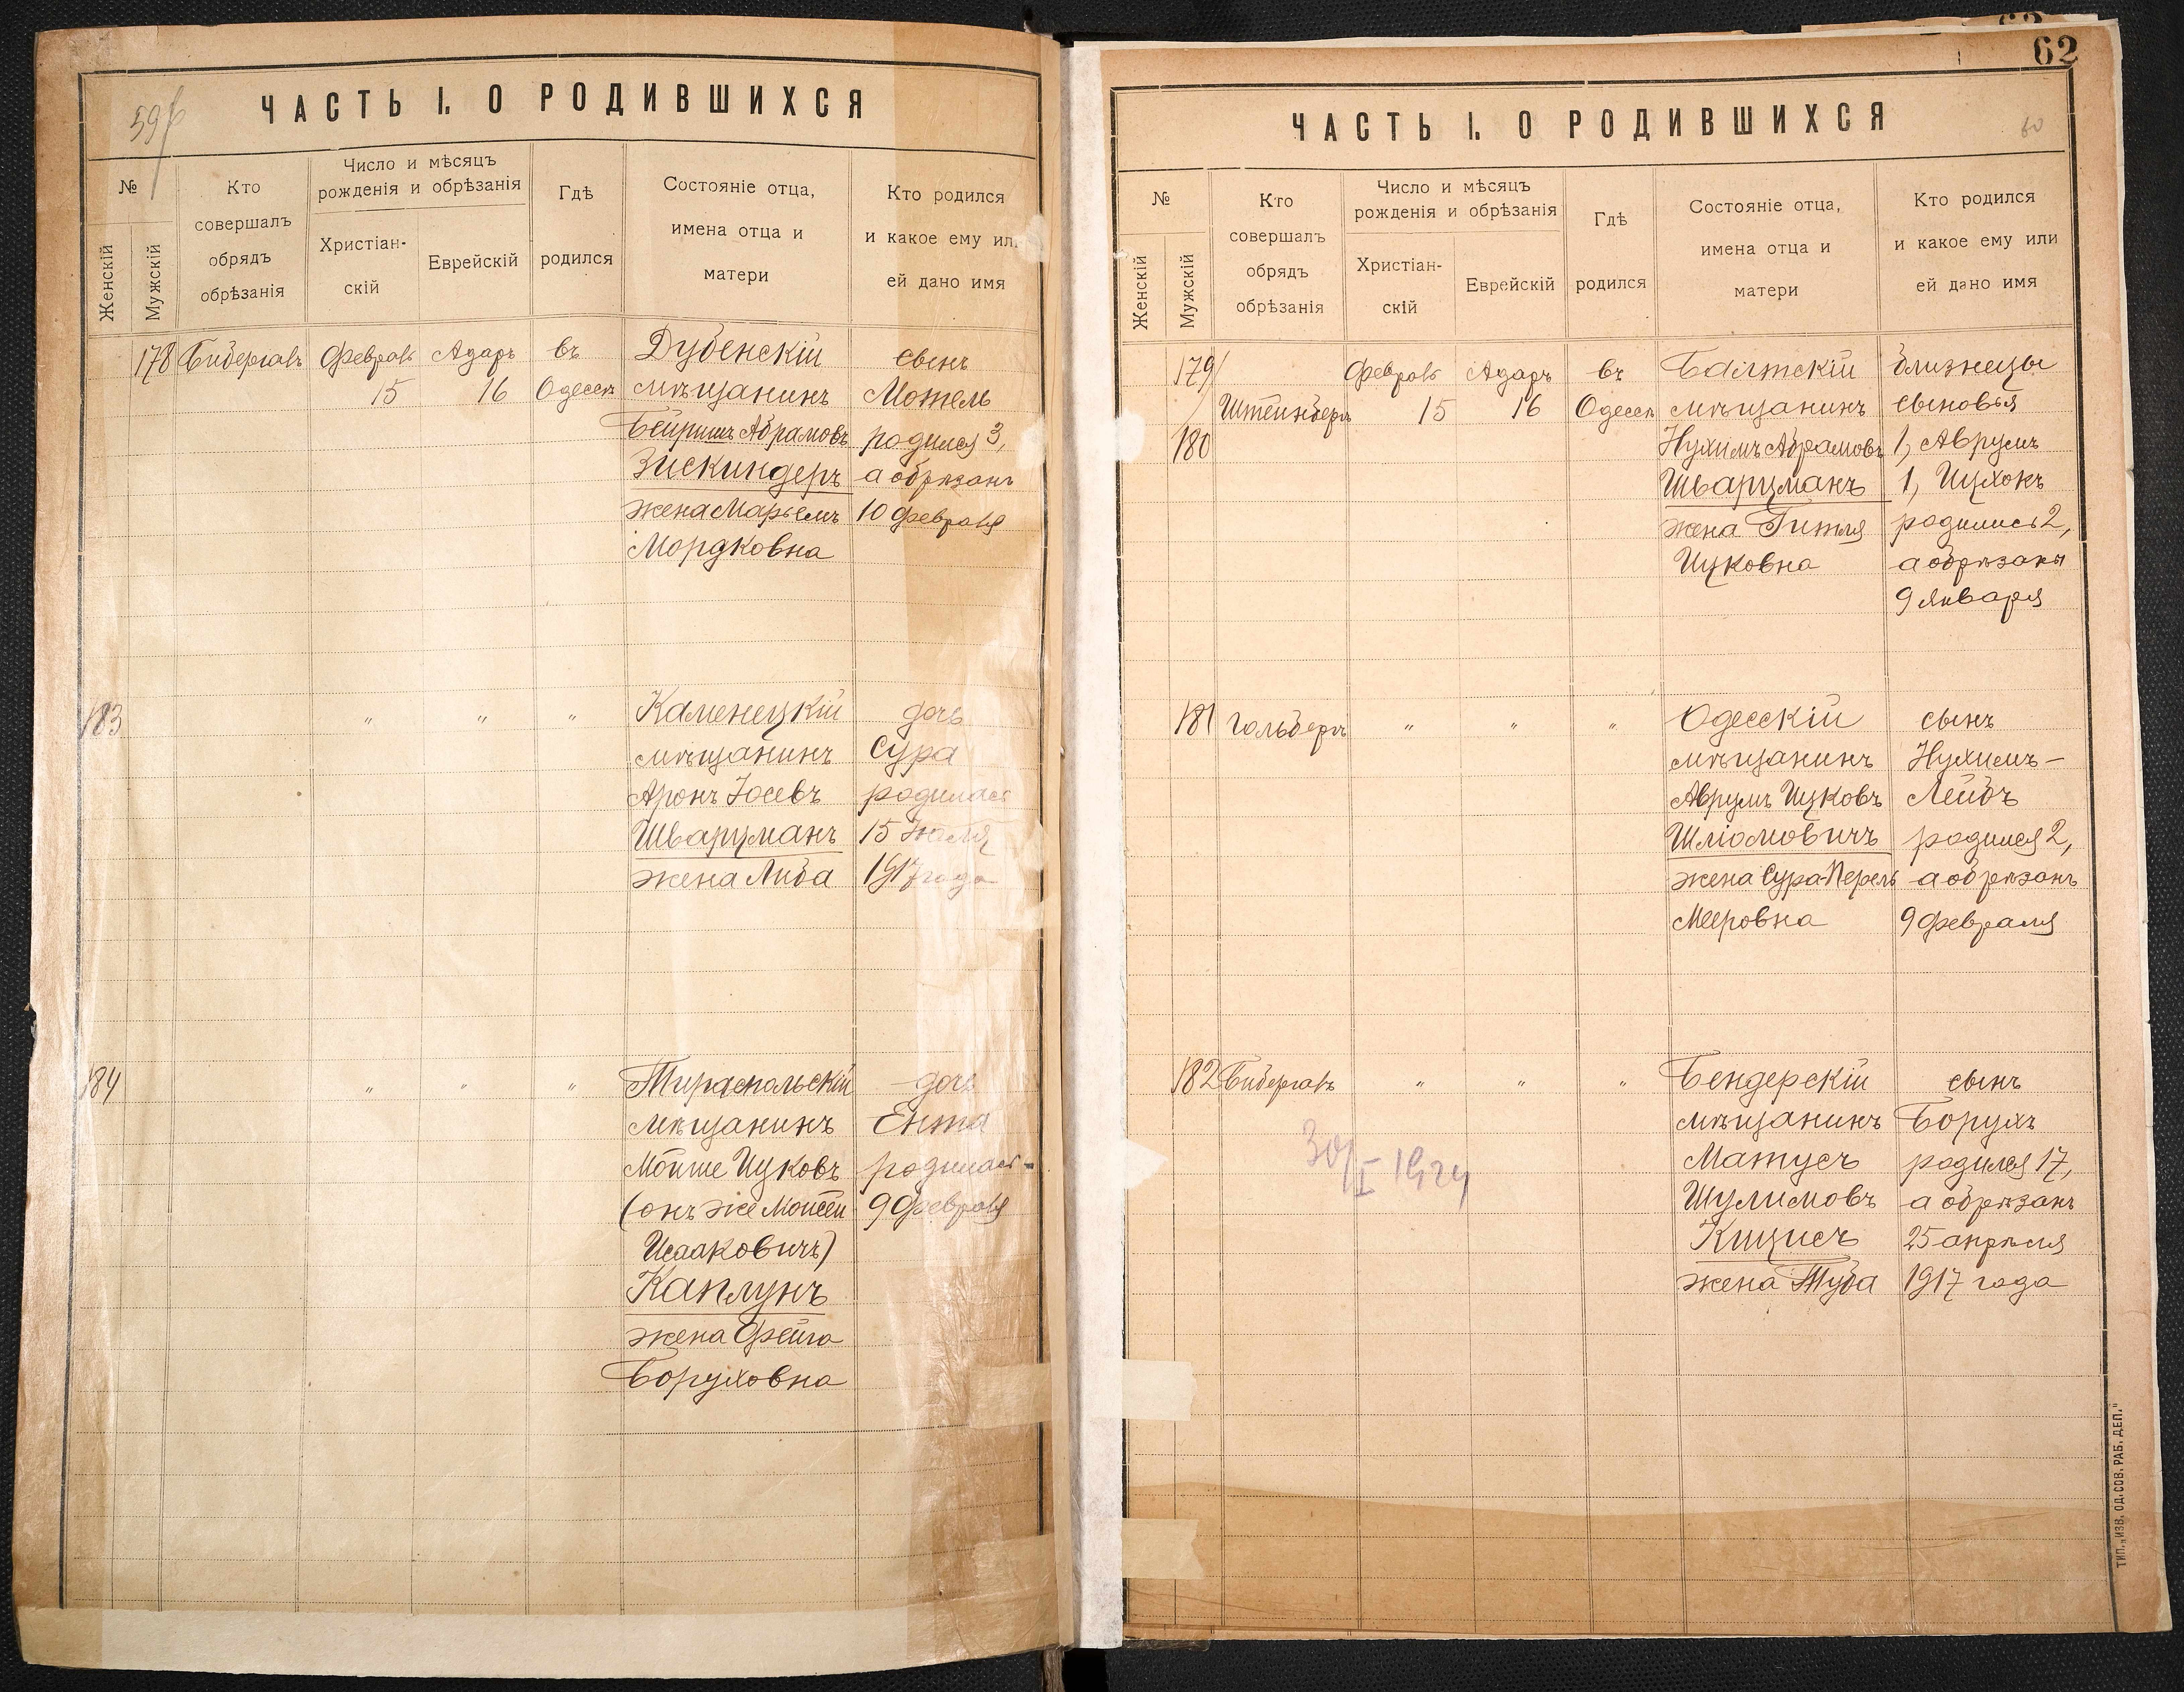 ЧАСТЬ I. О РОДИВШИХСЯ
№
Женскій
Мужскій
Кто
совершалъ
обрядъ
обрѣзанія
Число и мѣсяцъ
рожденія и обрѣзанія
Христіан-
скій
Еврейскій
Гдѣ
родился
Состояніе отца,
имена отца и
матери
Кто родился
и какое ему или
ей дано имя
178 Февраль Адаръ въ Дубенскій сынъ
15 16 Одессѣ мѣщанинъ Мотель
Бейришъ Абрамовъ родился 3,
Зискиндеръ а обрѣзанъ
жена Марьемъ 10 февраля
Мордковна
183 " " " Каменецкій дочь
мѣщанинъ Сура
Аронъ Іосевъ родилась
Шварцманъ 15 Іюля
жена Либа 1917 года
184 " " " Тираспольскій дочь
мѣщанинъ Ента
Мойше Ицковъ родилась
(онъ же Моисей 9 Февраля
Исааковичъ)
Каплунъ
жена Фейга
Боруховна
62
60
ЧАСТЬ I. О РОДИВШИХСЯ
№
Женскій
Мужскій
Кто
совершалъ
обрядъ
обрѣзанія
Число и мѣсяцъ
рожденія и обрѣзанія
Христіан-
скій
Еврейскій
Гдѣ
родился
Состояніе отца,
имена отца и
матери
Кто родился
и какое ему или
ей дано имя
179 Февраль Адаръ въ Балтскій близнецы
Штейнбергъ 15 16 Одессѣ мѣщанинъ сыновья
180 Нухимъ Абрамовъ 1, Аврумъ
Шварцманъ 1, Ицхокъ
жена Гитля родились 2,
Ицковна а обрѣзаны
9 января
181 Гольдбергъ " " " Одесскій сынъ
мѣщанинъ Нухимъ-
Аврумъ Ицковъ Лейбъ
Шліомовичъ родился 2,
жена Сура-Перель а обрѣзанъ
Мееровна 9 февраля
182 " " " Бендерскій сынъ
мѣщанинъ Борухъ
Матусъ родился 17,
Шулимовъ а обрѣзанъ
Кицисъ 25 апрѣля
жена Туба 1917 года
30/I 1924
ТИП. „ИЗВ. ОД. СОВ. РАБ. ДЕП."